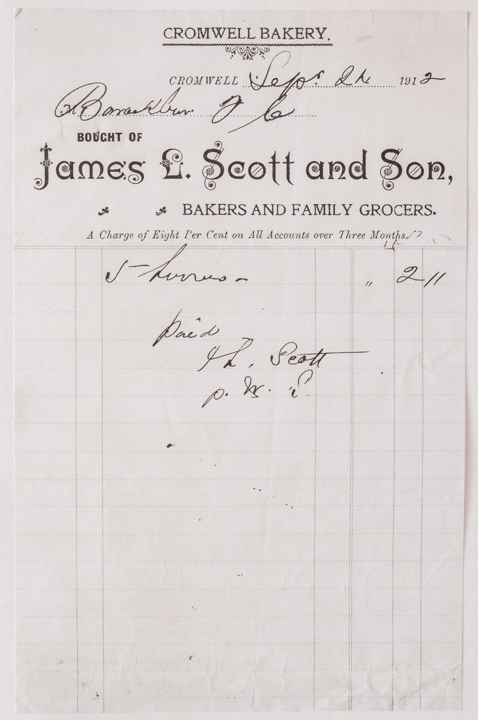 CROMWELL BAKERY.
CROMWELL Sepr 2d 1912
BOUGHT OF
James L. Scott and Son,
BAKERS AND FAMILY GROCERS.
A Charge of Eight Per Cent on All Accounts over Three Months.
5 " 2 11
paid
Scott
p.